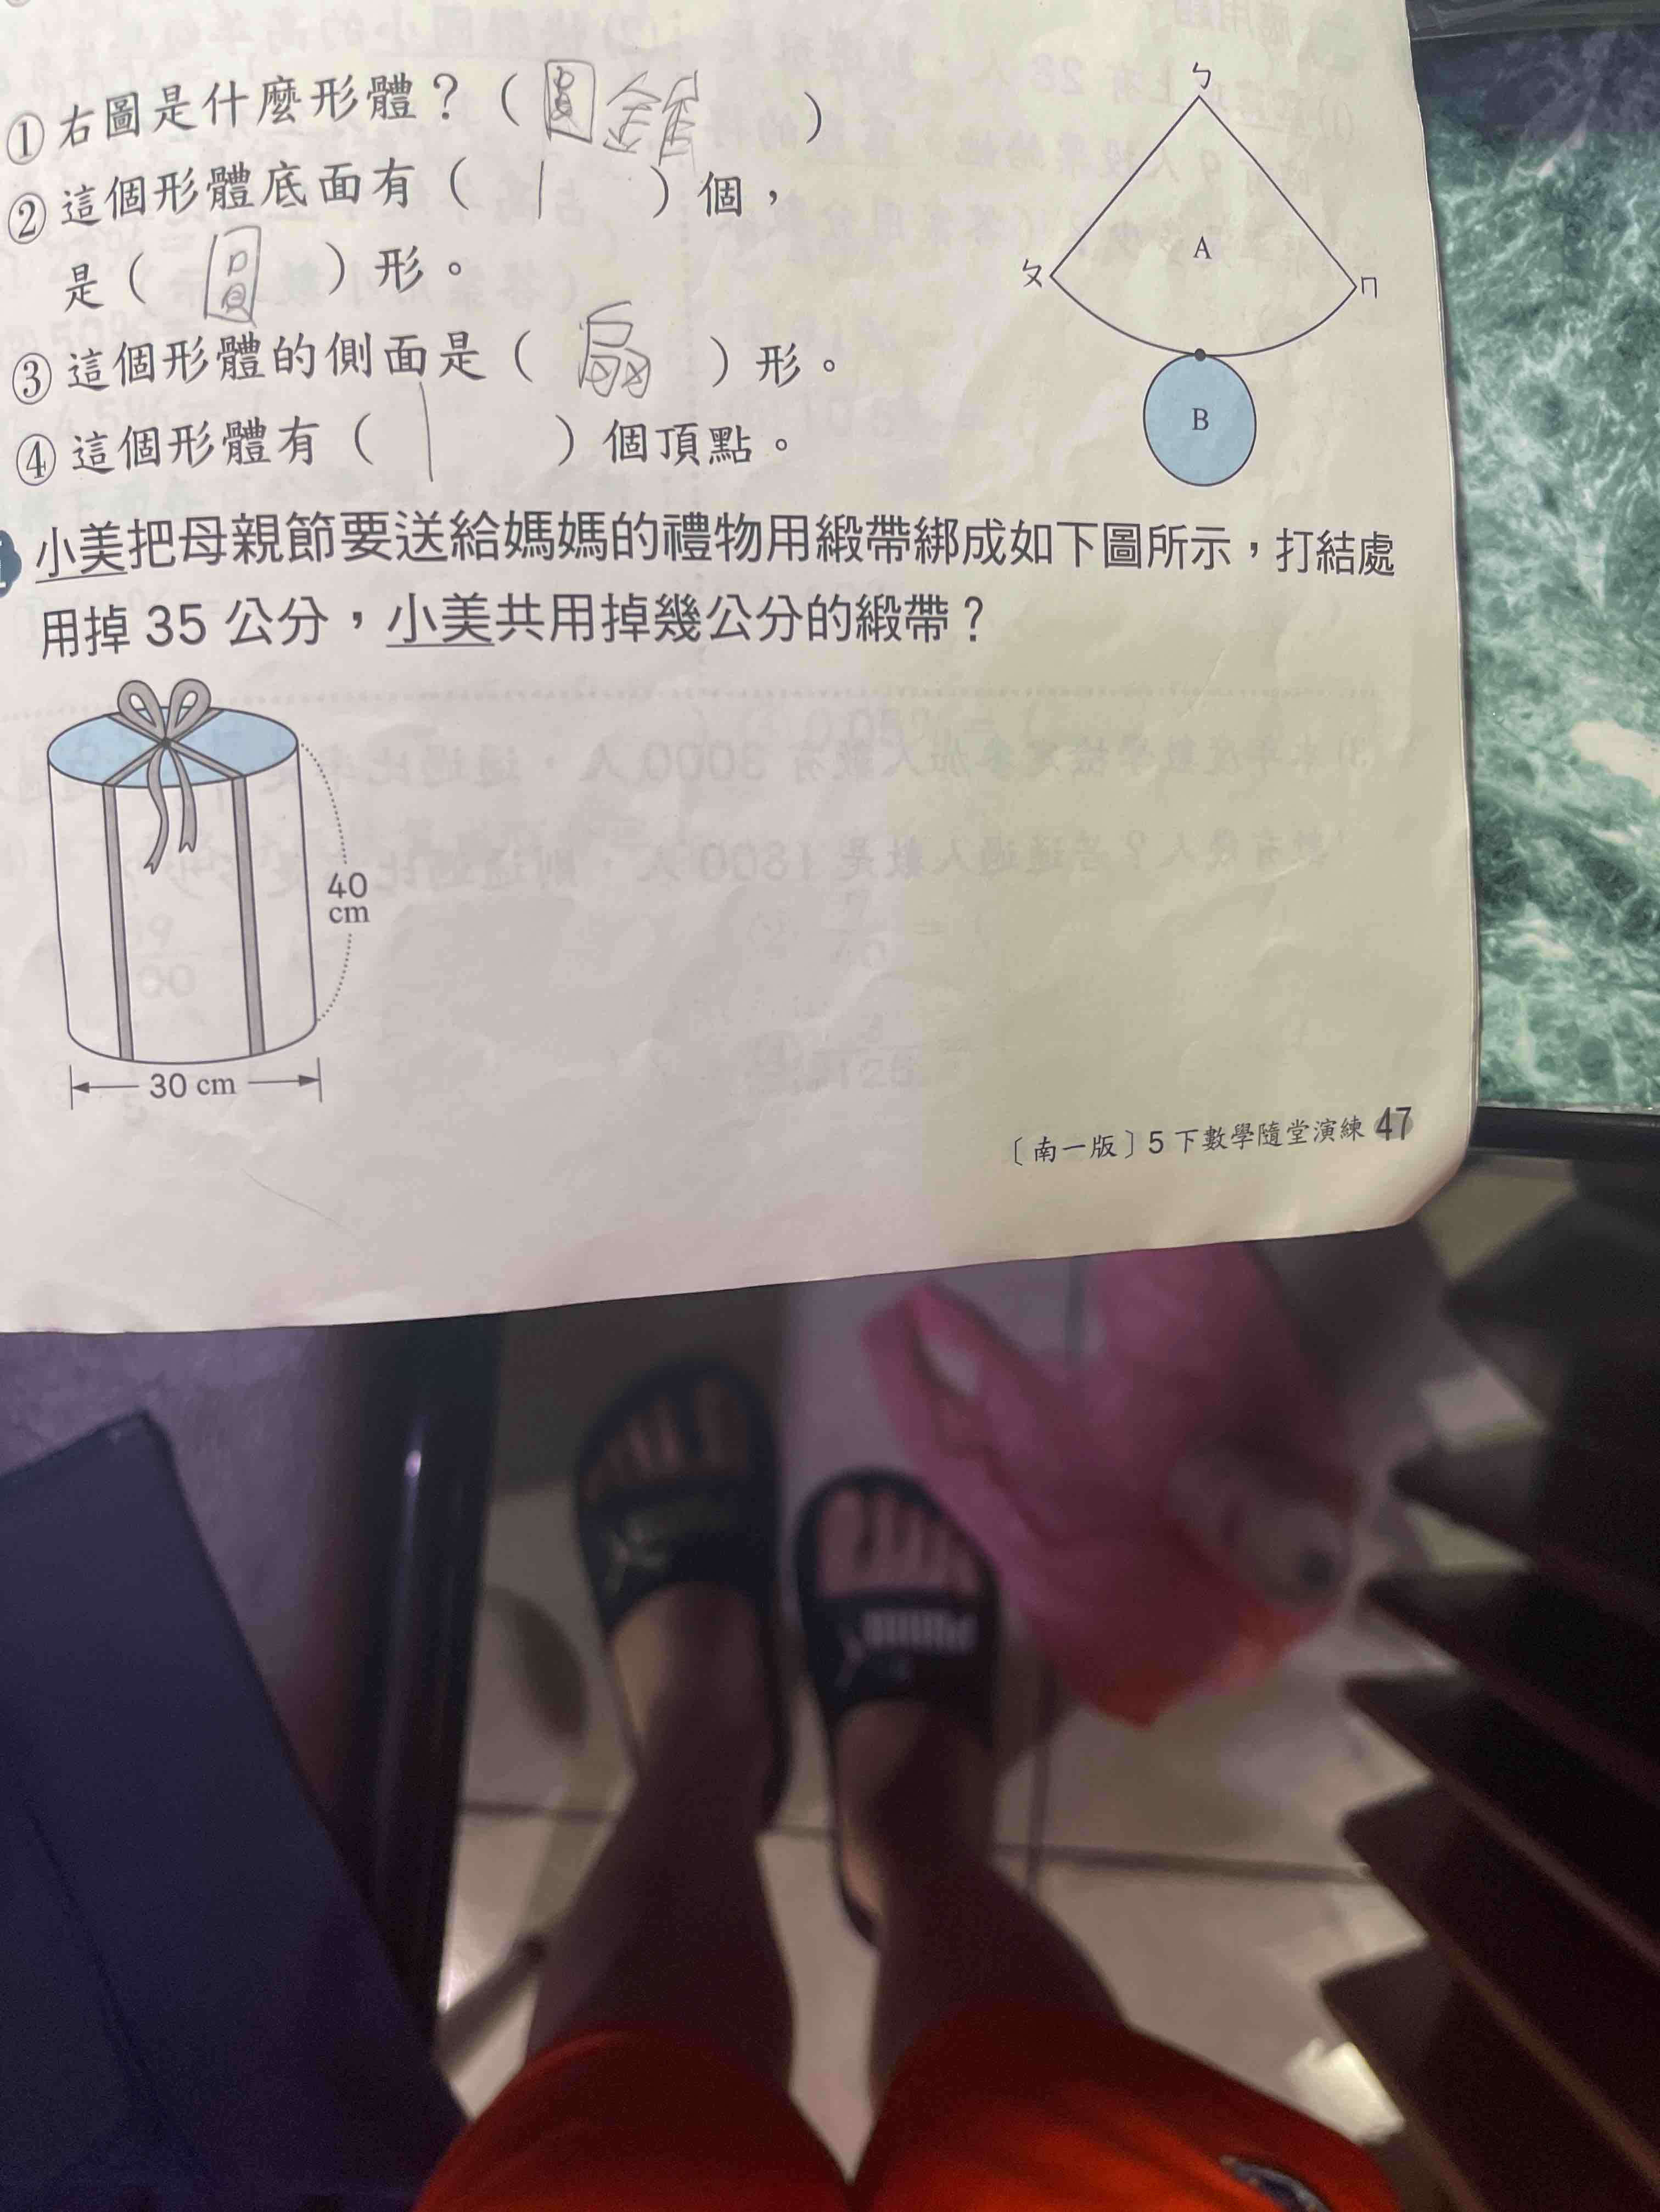 ①右圖是什麼形體？（圓錐）
②這個形體底面有（1）個，
是（圓）形。
③這個形體的側面是（扇）形。
④這個形體有（1）個頂點。
ㄅ
A
ㄆ
ㄇ
B
小美把母親節要送給媽媽的禮物用緞帶綁成如下圖所示，打結處
用掉 35 公分，小美共用掉幾公分的緞帶？
40
cm
30 cm
〔南一版〕5 下數學隨堂演練 47